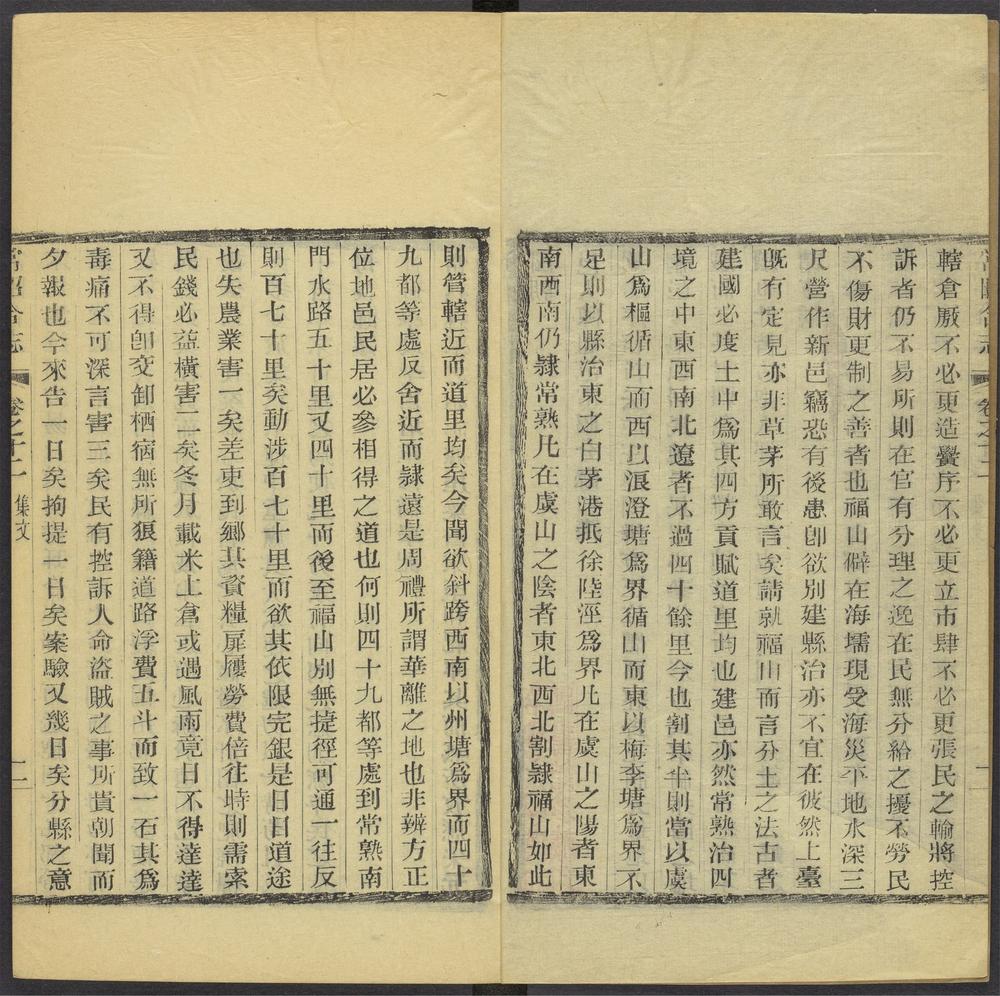 轄倉厫不必更造黌序不必更立市肆不必更張民之輸將控
訴者仍不易所則在官有分理之逸在民無分給之擾不勞民
不傷財更制之善者也福山僻在海壖現受海災平地水深三
尺營作新邑竊恐有後患卽欲別建縣治亦不宜在彼然上臺
旣有定見亦非草茅所敢言矣請就福山而言分土之法古者
建國必度土中爲其四方貢賦道里均也建邑亦然常熟治四
境之中東西南北遼者不過四十餘里今也割其半則當以虞
山爲樞循山而西以浪澄塘爲界循山而東以梅李塘爲界不
足則以縣治東之白茅港抵徐陸涇爲界凡在虞山之陽者東
南西南仍隸常熟凡在虞山之陰者東北西北割隸福山如此
則管轄近而道里均矣今聞欲斜跨西南以州塘爲界而四十
九都等處反舍近而隸遠是周禮所謂華離之地也非辨方正
位地邑民居必參相得之道也何則四十九都等處到常熟南
門水路五十里又四十里而後至福山別無捷徑可通一往反
則百七十里矣動涉百七十里而欲其依限完銀是日日道途
也失農業害一矣差吏到鄉其資糧屝屨勞費倍往時則需索
民錢必益橫害二矣冬月載米上倉或遇風雨竟日不得達達
又不得卽交卸栖宿無所狼籍道路浮費五斗而致一石其爲
毒痛不可深言害三矣民有控訴人命盜賊之事所貴朝聞而
夕報也今來告一日矣拘提一日矣案驗又幾日矣分縣之意
常昭合志
卷之十一
集文